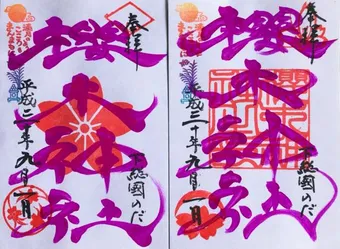 奉拝
櫻木神社
平成三十年九月一日
下総國のだ
奉拝
櫻木神社
平成三十年九月一日
下総國のだ